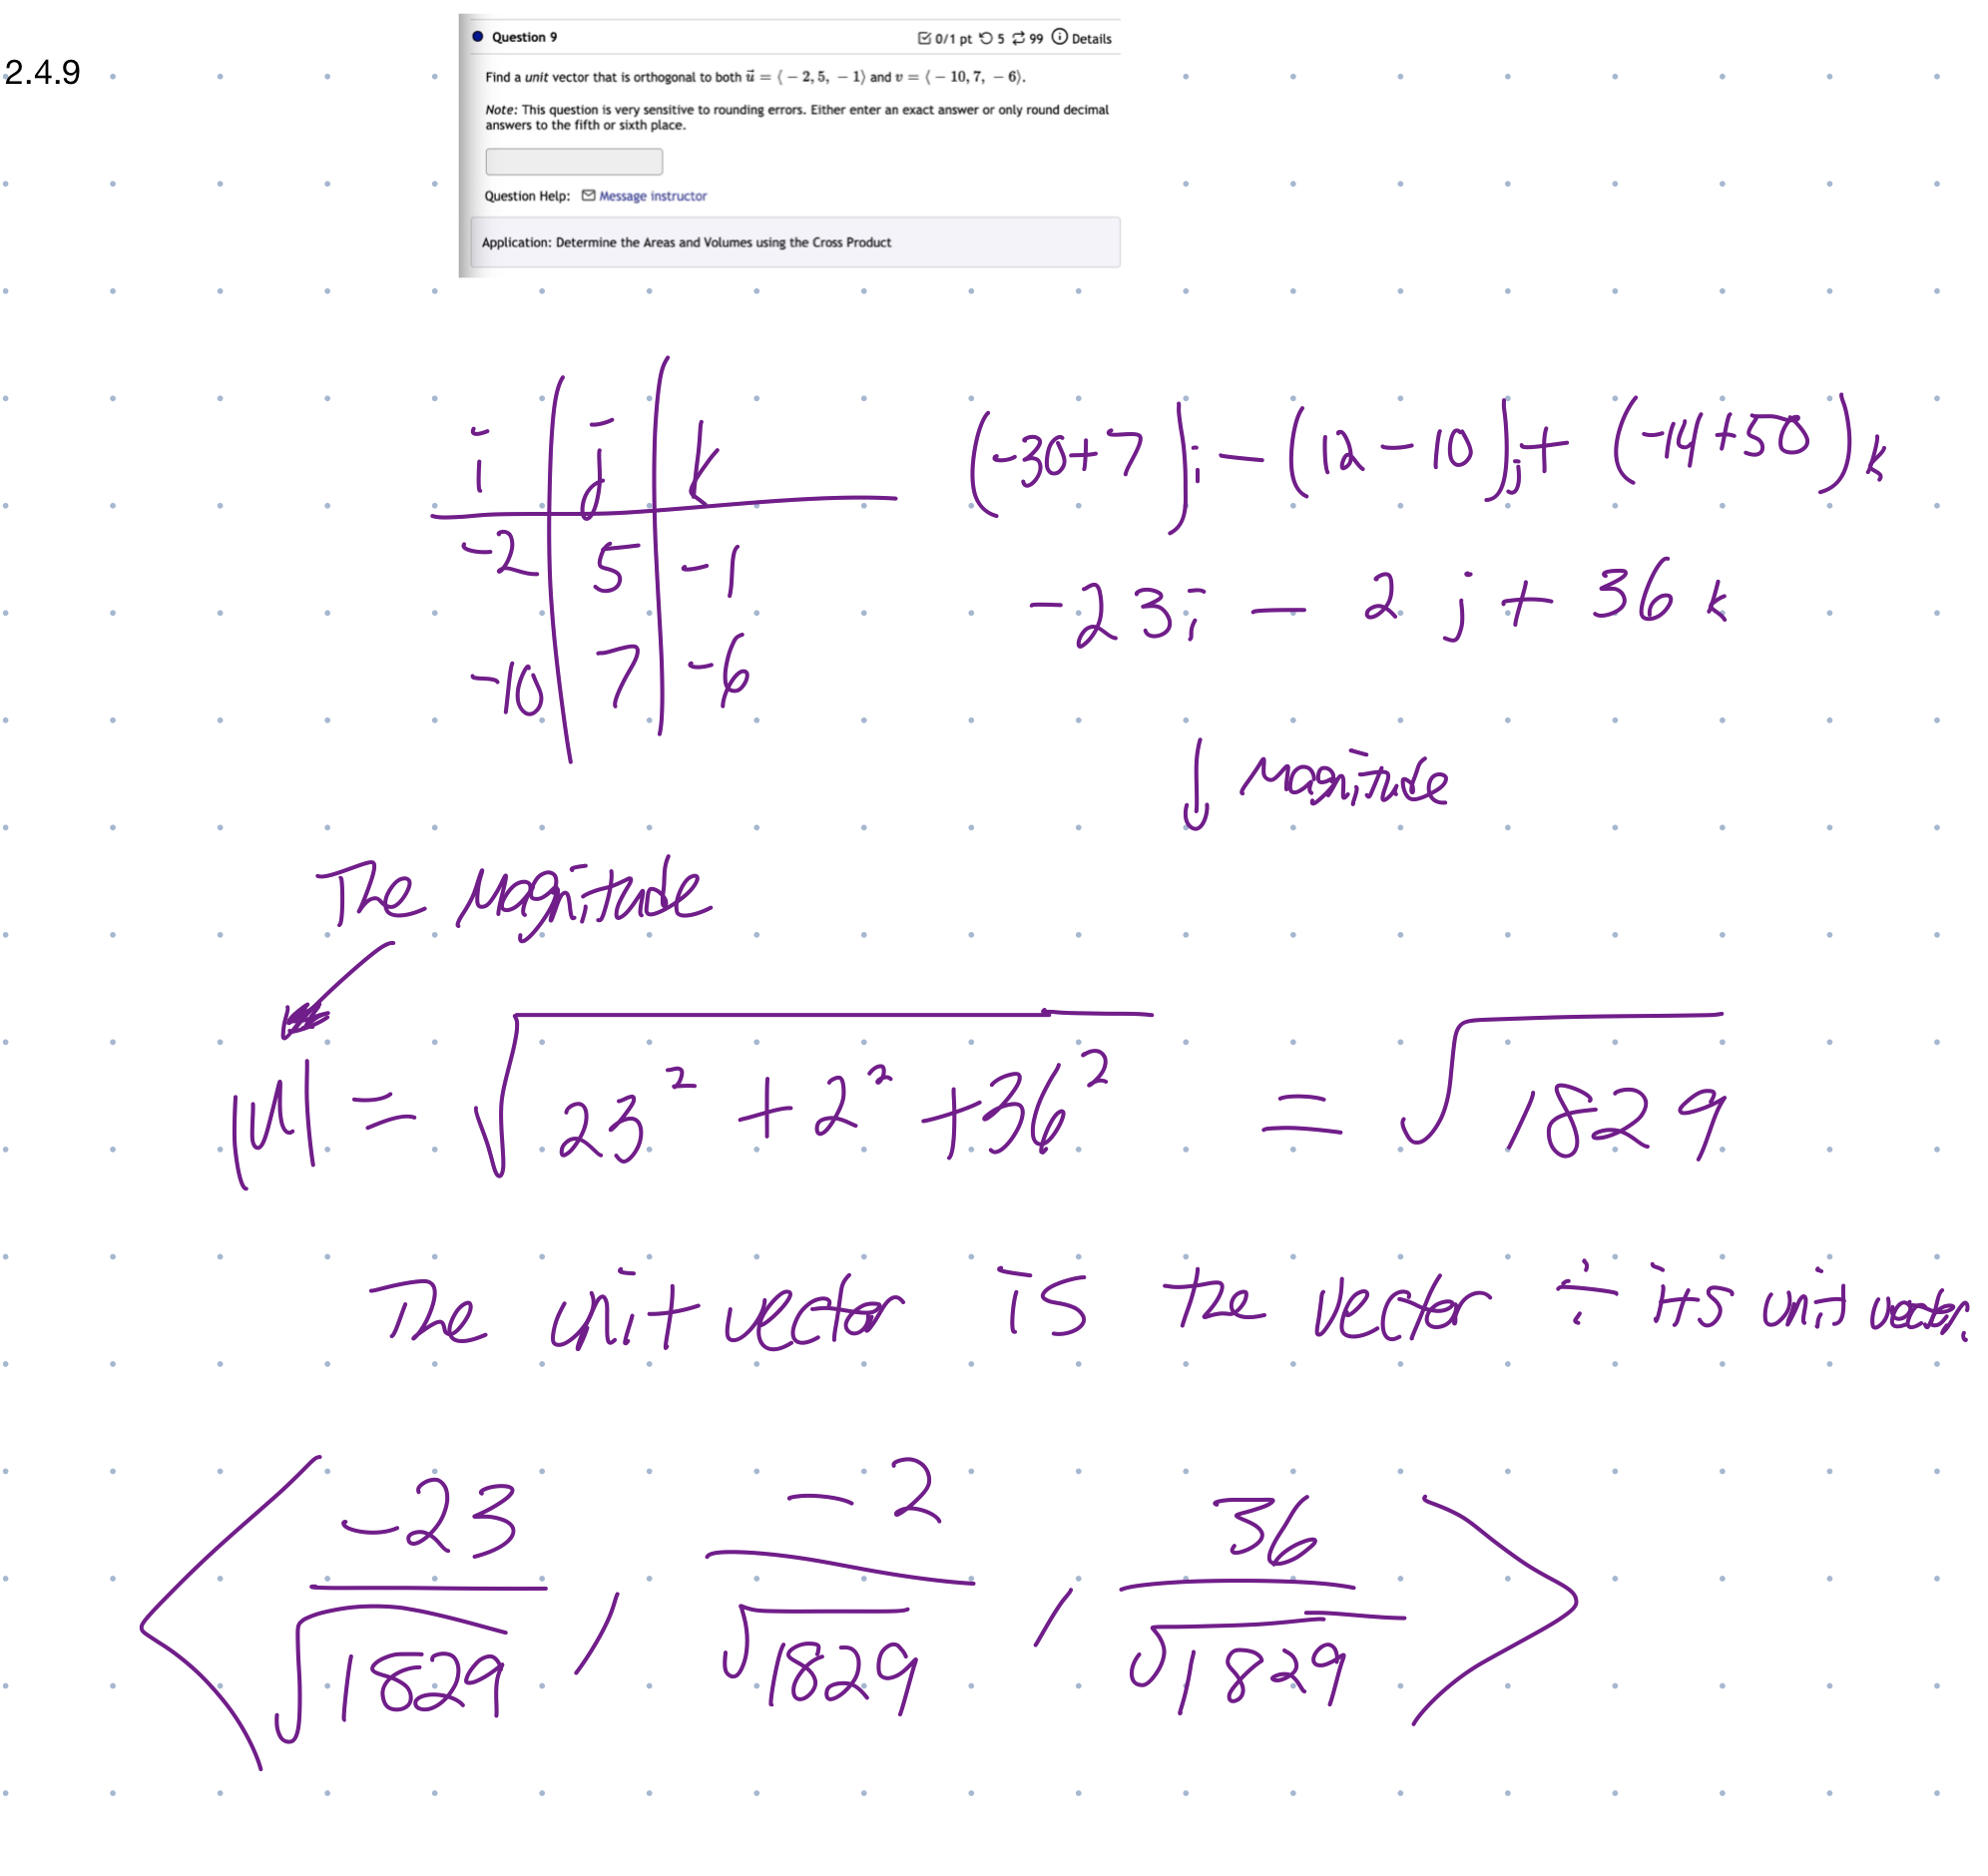 2.4.9
Question 9 0/1 pt 5 99 Details
Find a unit vector that is orthogonal to both u⃗ = ⟨ − 2, 5, − 1⟩ and v = ⟨ − 10, 7, − 6⟩.
Note: This question is very sensitive to rounding errors. Either enter an exact answer or only round decimal
answers to the fifth or sixth place.
Question Help: Message instructor
Application: Determine the Areas and Volumes using the Cross Product
i j k
-2 5 -1
-10 7 -6
(-30+7)i - (12-10)j + (-14+50)k
-23i - 2j + 36k
↓ Magnitude
The Magnitude
|u| = √(23² + 2² + 36²) = √1829
The unit vector is the vector ÷ its unit vector
⟨ -23/√1829 , -2/√1829 , 36/√1829 ⟩